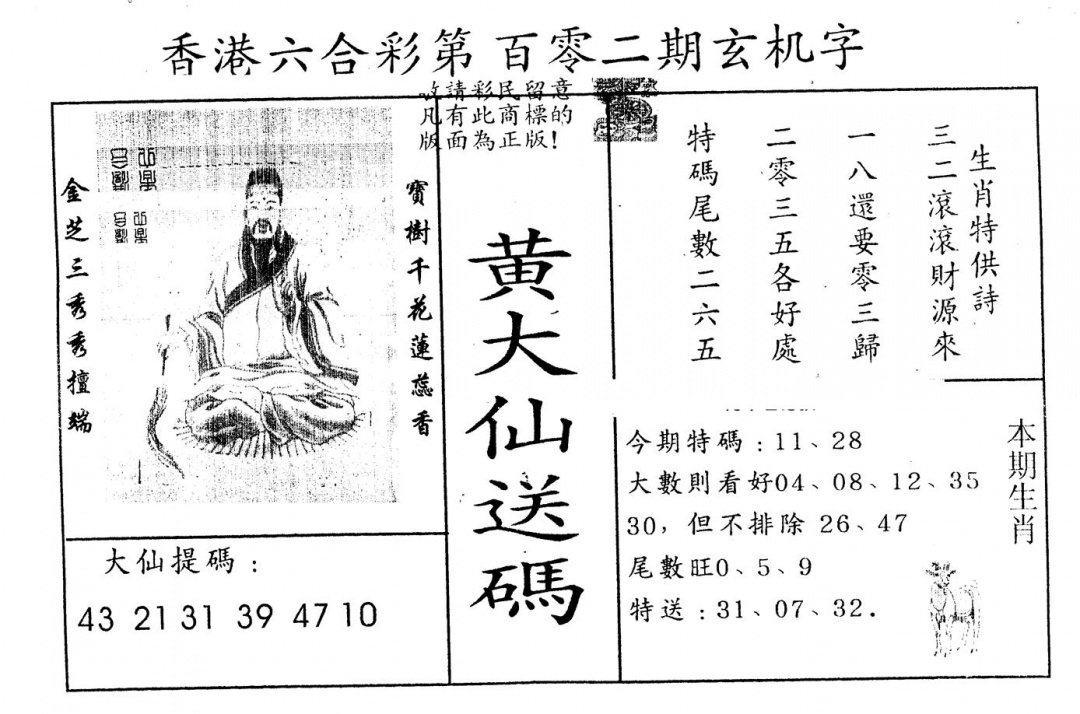 香港六合彩第 百零二期玄机字
請彩民留意
凡有此商標的
版面為正版!
金芝三秀秀擅端
寶樹千花蓮蕊香
黄大仙送碼
生肖特供詩
三二滾滾財源來
一八還要零三歸
二零三五各好處
特碼尾數二六五
大仙提碼：
43 21 31 39 47 10
今期特碼：11、28
大數則看好04、08、12、35
30，但不排除 26、47
尾數旺0、5、9
特送：31、07、32.
本期生肖